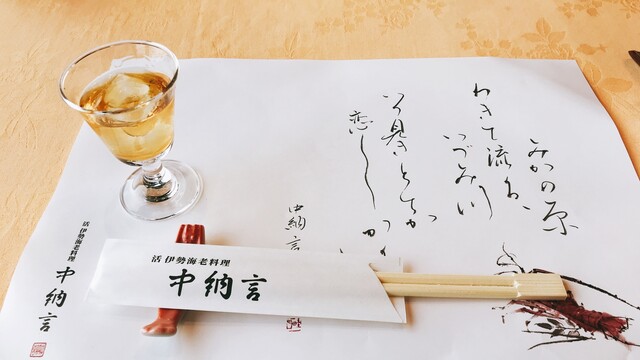 みかの原
わきて流るゝ
いづみ川
いつ見きとてか
恋しか
中納言
活 伊勢海老料理
中納言
活 伊勢海老料理
中納言